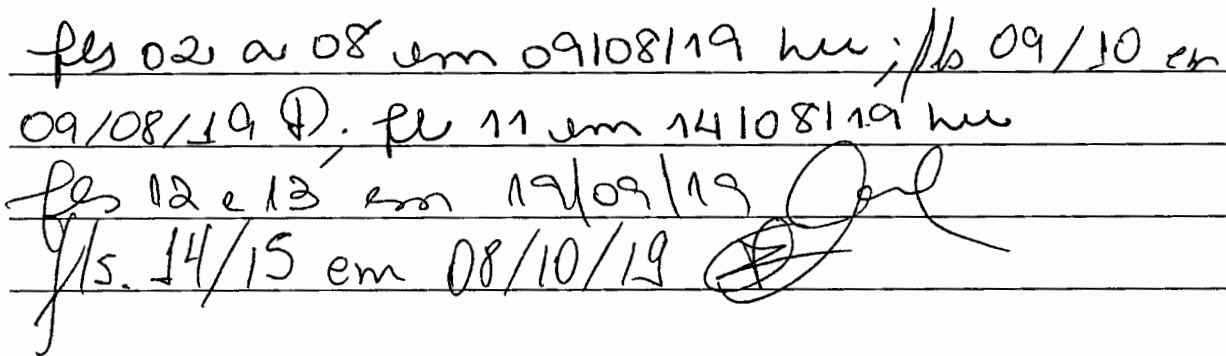 fls 02 a 08 em 09/08/19 ; fls 09/10 em
09/08/19 . fl 11 em 14/08/19
fls 12 e 13 em 19/09/19
fls. 14/15 em 08/10/19